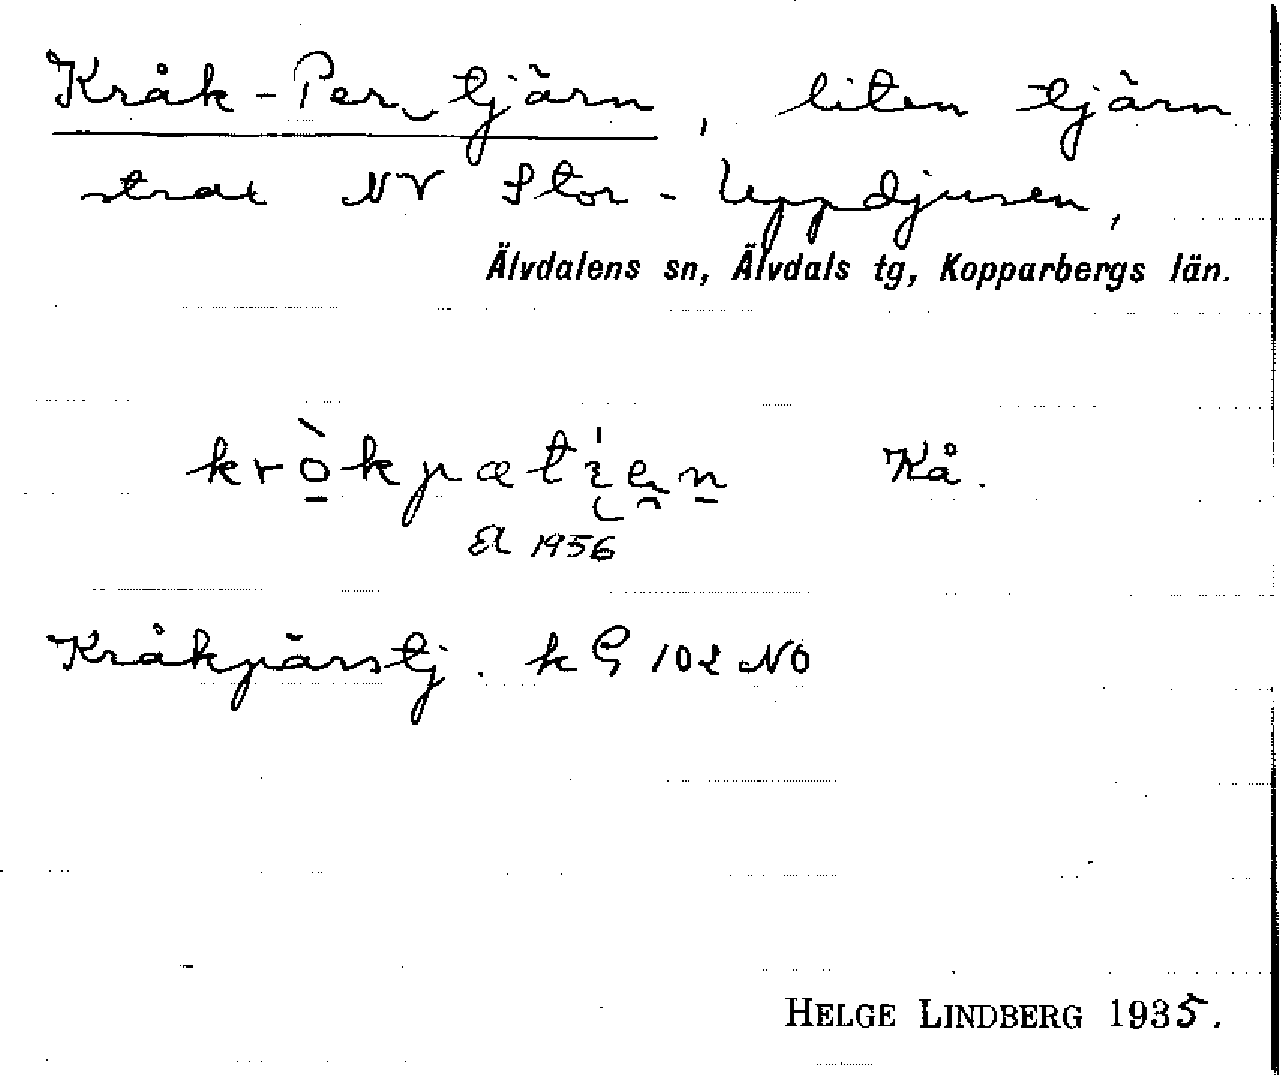 Kråk-Per tjärn, liten tjärn
strax NV Stor-Uppdjusen,
Älvdalens sn, Älvdals tg, Kopparbergs län.
Kå.
El 1956
Kråkpärstj. kG 102 NO
HELGE LINDBERG 1935.